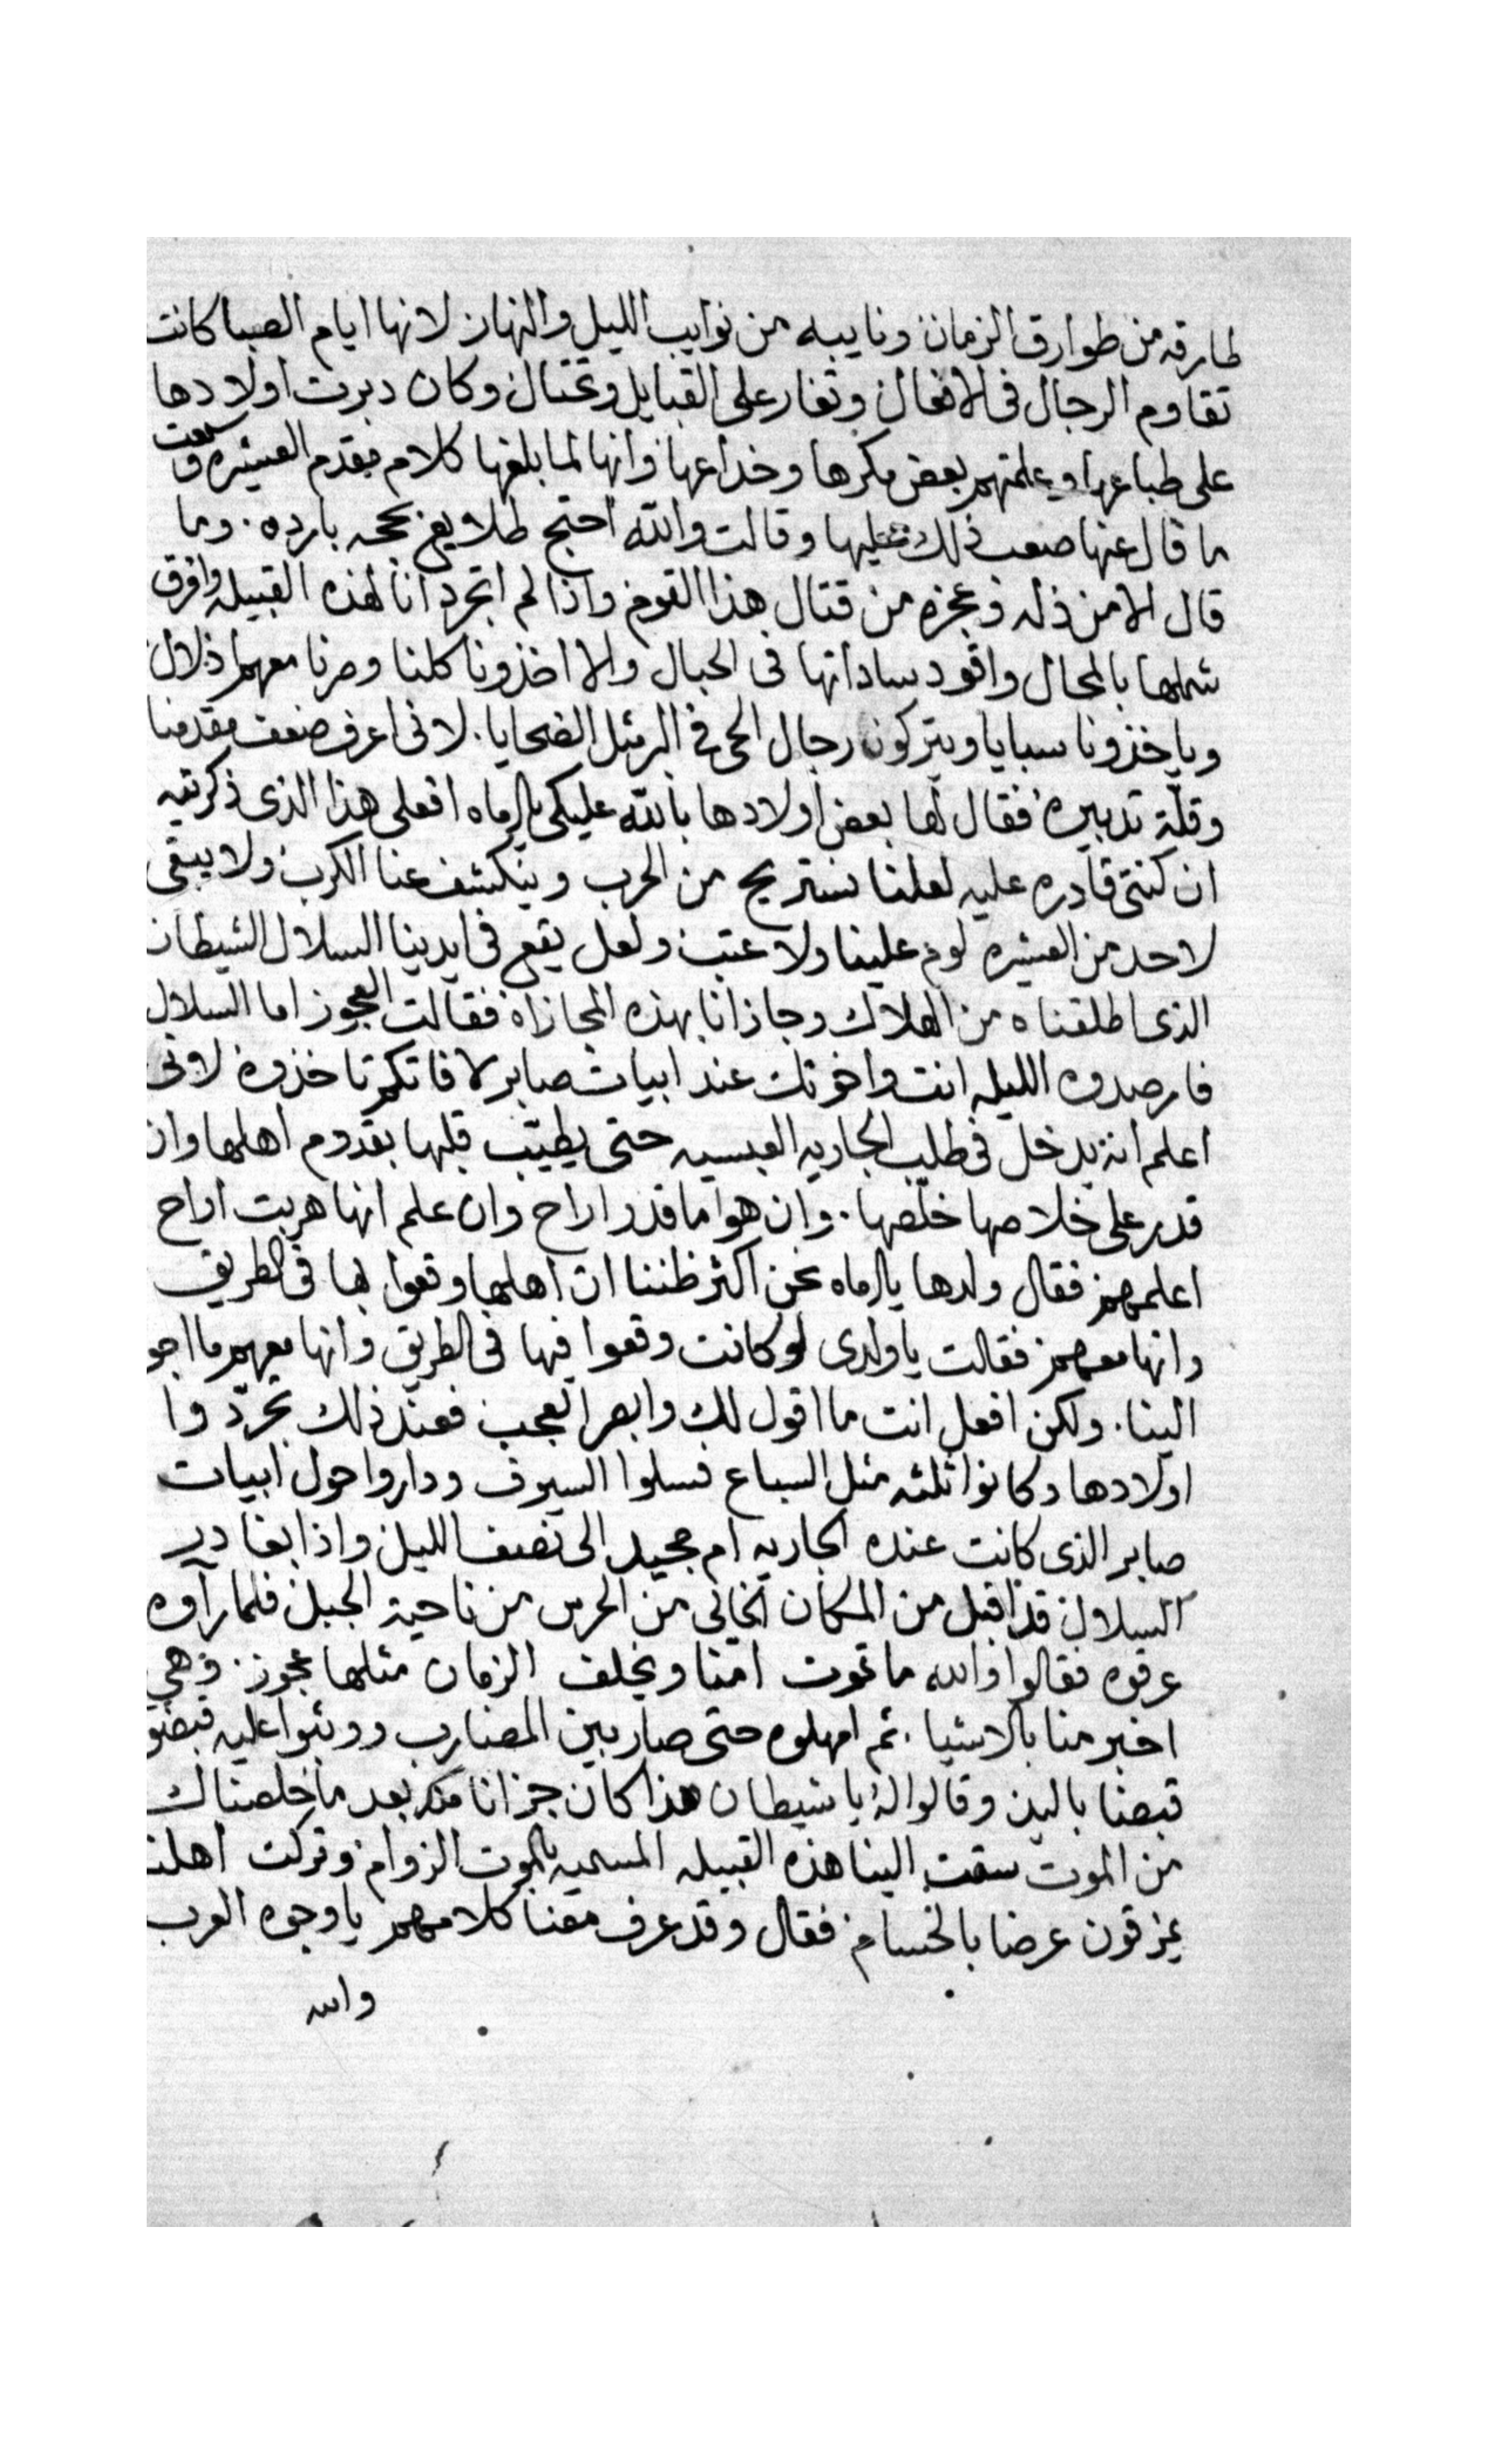 طارقه من طوارق الزمان ونايبه من نوايب الليل والنهار لانها ايام الصبا كانت
تقاوم الرجال فى الافعال وتغار على القبايل وتختال وكان دبرت اولادها
على طباعها وعلمتهم بعض مكرها وخداعها وانها لما بلغها كلام مقدم العشيره وسمعت
ما قال عنها صعب ذلك عليها وقالت والله احتج طلايع بحجه بارده. وما
قال الا من ذله وعجزه من قتال هذا القوم واذا لم اتجرد انا لهذه القبيله وافرق
شملها بالمحال واقود ساداتها فى الحبال والا اخذونا كلنا وصرنا معهم اذلال
وياخذونا سبايا ويتركون رجال الحى فى الرمل الضحايا. لانى اعرف ضعف مقدمنا
وقلة تدبيره فقال لها بعض اولادها بالله عليكى يا اماه افعلى هذا الذى ذكرتيه
ان كنتى قادره عليه لعلنا نستريح من الحرب وينكشف عنا الكرب ولا يبقى
لاحد من العشيره لوم علينا ولا عتب ولعل يقع فى ايدينا السلال الشيطان
الذى اطلقناه من الهلاك وجازانا بهذه المجازاه فقالت العجوز اما السلال
فارصدوه الليله انت واخوتك عند ابيات صابر لا فاتكم تاخذوه لانى
اعلم انه يدخل فى طلب الجاريه العبسيه حتى يطيب قلبها بقدوم اهلها وان
قدر على خلاصها خلصها. وان هو اما قدر اراح وان علم انها هربت اراح
اعلمهم فقال ولدها يا اماه نحن اكثر ظننا ان اهلها وقعوا بها فى الطريق
وانها معهم فقالت يا ولدى لو كانت وقعوا فيها فى الطريق وانها معهم ما اجو
الينا. ولكن افعل انت ما اقول لك وابصر العجب فعند ذلك تجردوا
اولادها وكانوا ثلثه مثل السباع فسلوا السيوف وداروا حول ابيات
صابر الذى كانت عنده الجاريه ام مجيد الى نصف الليل واذا بغادر
السلال قد اقبل من المكان الخالى من الحرس من ناحية الجبل فلما رآوه
عرفوه فقالوا والله ما تموت امنا ويخلف الزمان مثلها عجوز. وهى
اخبر منا بالاشيا. ثم امهلوه حتى صار بين المضارب ووثبوا عليه قبضو
قبضا باليد وقالوا له يا شيطان هذا كان جزانا منك بعد ما خلصناك
من الموت سقت الينا هذه القبيله المسميه بالموت الزوام وتركت اهلنا
يمزقون عرضا بالحسام فقال وقد عرف معنا كلامهم يا وجوه العرب
والله